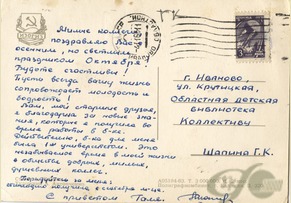 Милые коллеги!
поздравляю Вас
осенним, но светлым
праздником Октября
Будьте счастливы!
Пусть всегда вашу жизнь
сопровождает молодость и
бодрость!
Вам, мои старшие друзья,
я благодарна за новые знания,
которые я получила во
время работы в б-ке.
Действительно, б-ка для меня
была 1м университетом. Это
незабываемое время в моей жизни
в обществе добрых, милых,
душевных коллег.
Порадуйтесь за меня:
С приветом Галя.
г. Иваново,
ул. Крутицкая
Областная детская
библиотека
Коллективу
Шапина Г.К.